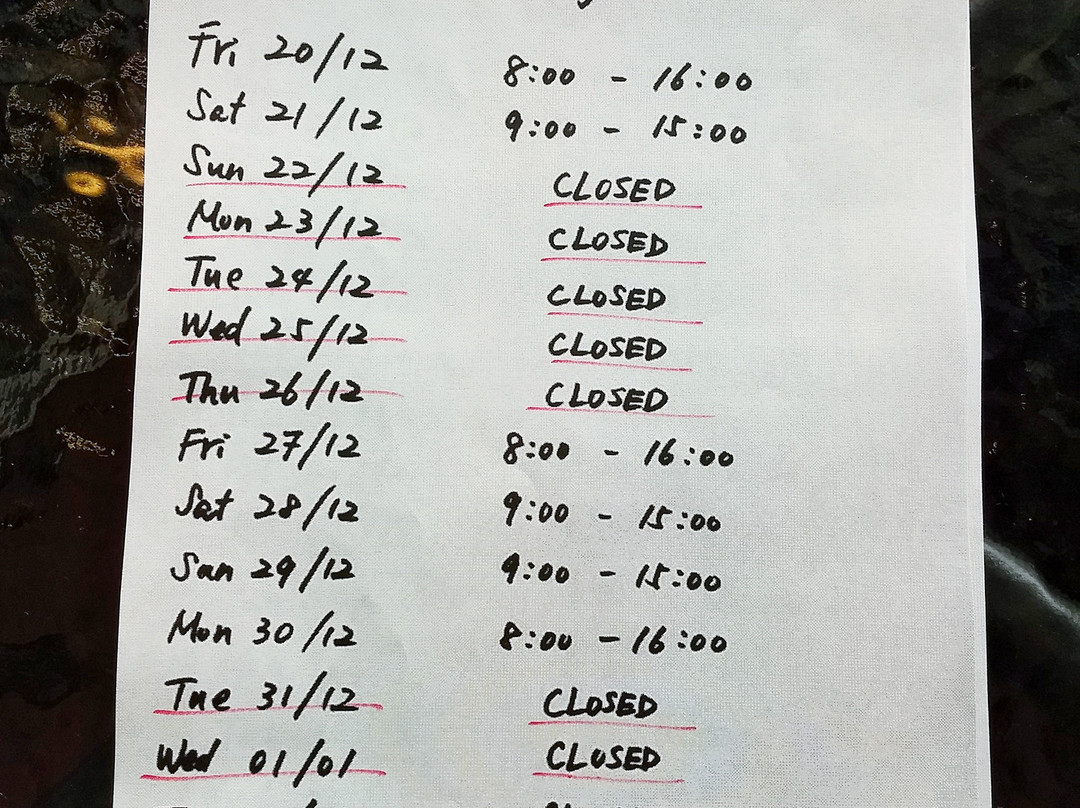 Fri 20/12 8:00 - 16:00
Sat 21/12 9:00 - 15:00
Sun 22/12 CLOSED
Mon 23/12 CLOSED
Tue 24/12 CLOSED
Wed 25/12 CLOSED
Thu 26/12 CLOSED
Fri 27/12 8:00 - 16:00
Sat 28/12 9:00 - 15:00
Sun 29/12 9:00 - 15:00
Mon 30/12 8:00 - 16:00
Tue 31/12 CLOSED
Wed 01/01 CLOSED